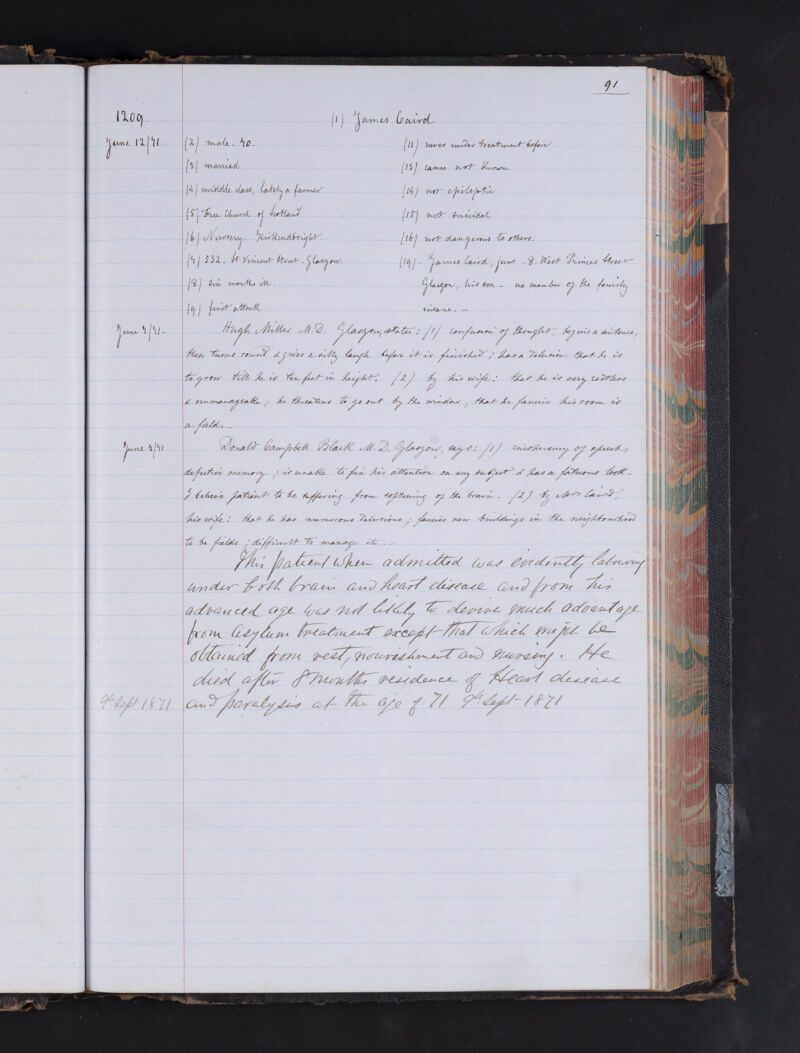 91
1209 (1) James Caird
June 12/71 (2) male - 70. (11) never under treatment before
(3) married (13) cause not known
(4) middle class, lately a farmer (14) not epileptic
(5) Free Church of Scotland (15) not suicidal
(6) Nursery Kirkcudbright (16) not dangerous to others.
(7) 332. St Vincent Street - Glasgow. (19) - James Caird, junr - 8. West Princes Street
(8) six months ill. Glasgow, his son - no member of the family
(9) first attack insane. -
June /71 - Hugh Miller M.D. Glasgow, states: (1) confusion of thought, begins a sentence,
then turns round & gives a silly laugh before it is finished; has a delusion that he is
to grow till he is ten feet in height. (2) by his wife: that he is very restless
& unmanageable; he threatens to go out by the window, that he fancies his room is
a field. -
June /71 Donald Campbell Black M.D. Glasgow, says: (1) incoherency of speech,
defective memory; is unable to fix his attention on any subject & has a fatuous look -
I believe patient to be suffering from softening of the brain. (2) by Mrs Caird,
his wife: that he has numerous delusions; fancies new buildings in the neighbourhood
to be fields; difficult to manage &c. -
This patient when admitted was evidently labouring
under both brain and heart disease and from his
advanced age was not likely to derive much advantage
from asylum treatment except that which might be
obtained from rest, nourishment and nursing. He
died after 8 months residence of Heart disease
9th Sept 1871 and paralysis at the age of 71 9th Sept 1871